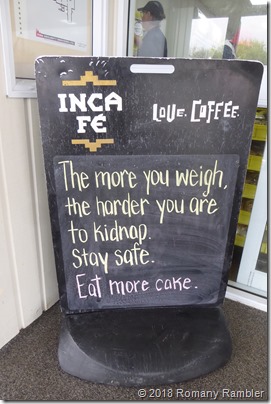 INCA
FÉ
LOVE. COFFEE.
The more you weigh,
the harder you are
to kidnap.
Stay safe.
Eat more cake.
© 2018 Romany Rambler